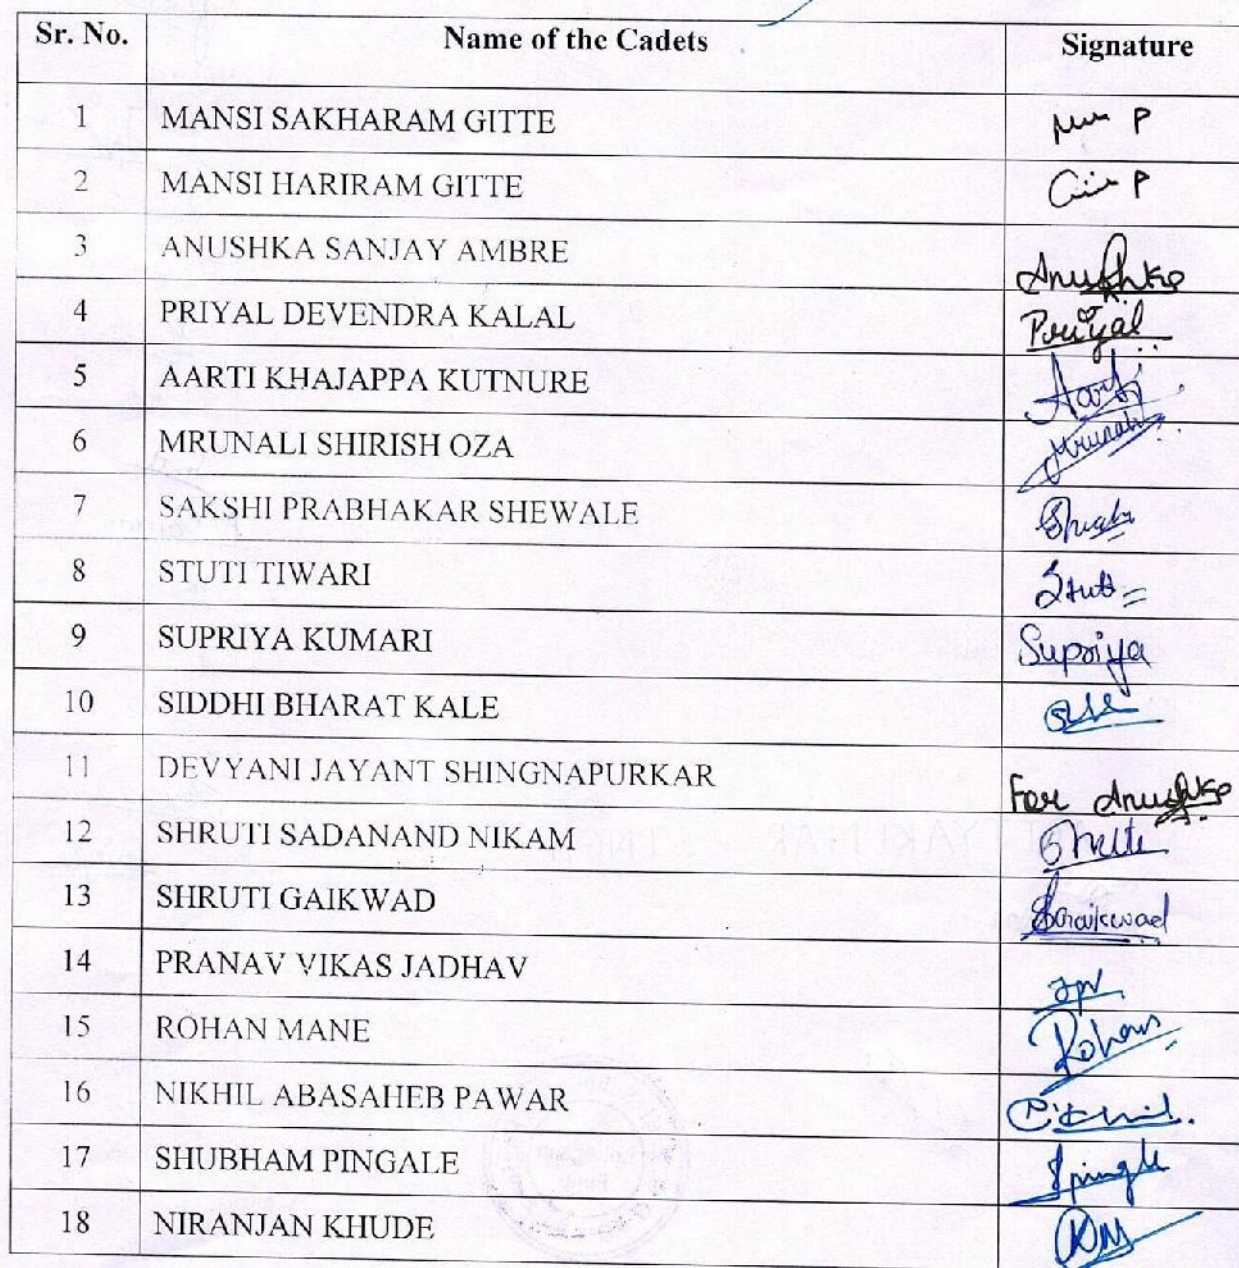 Sr. No. Name of the Cadets Signature
1 MANSI SAKHARAM GITTE P
2 MANSI HARIRAM GITTE P
3 ANUSHKA SANJAY AMBRE Anushka
4 PRIYAL DEVENDRA KALAL Priyal
5 AARTI KHAJAPPA KUTNURE Aarti
6 MRUNALI SHIRISH OZA Mrunali
7 SAKSHI PRABHAKAR SHEWALE
8 STUTI TIWARI Stuti
9 SUPRIYA KUMARI Supriya
10 SIDDHI BHARAT KALE
11 DEVYANI JAYANT SHINGNAPURKAR For Anushka
12 SHRUTI SADANAND NIKAM
13 SHRUTI GAIKWAD SGaikwad
14 PRANAV VIKAS JADHAV
15 ROHAN MANE Rohan
16 NIKHIL ABASAHEB PAWAR
17 SHUBHAM PINGALE
18 NIRANJAN KHUDE